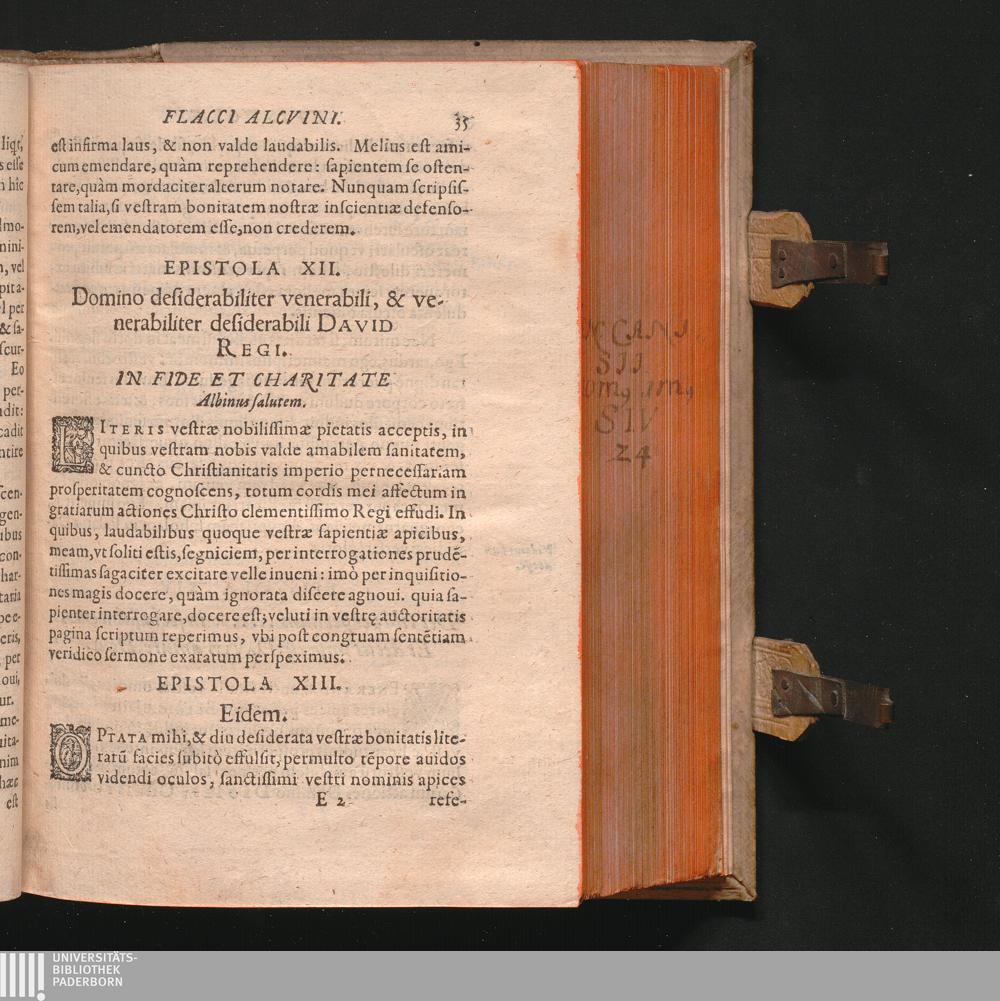 FLACCI ALCVINI. 35
est infirma laus, & non valde laudabilis. Melius est ami-
cum emendare, quàm reprehendere: sapientem se osten-
tare, quàm mordaciter alterum notare. Nunquam scripsis-
sem talia, si vestram bonitatem nostræ inscientiæ defenso-
rem, vel emendatorem esse, non crederem.
EPISTOLA XII.
Domino desiderabiliter venerabili, & ve-
nerabiliter desiderabili DAVID
REGI.
IN FIDE ET CHARITATE
Albinus salutem.
LITERIS vestræ nobilissimæ pietatis acceptis, in
quibus vestram nobis valde amabilem sanitatem,
& cuncto Christianitatis imperio pernecessariam
prosperitatem cognoscens, totum cordis mei affectum in
gratiarum actiones Christo clementissimo Regi effudi. In
quibus, laudabilibus quoque vestræ sapientiæ apicibus,
meam, vt soliti estis, segniciem, per interrogationes prudē-
tissimas sagaciter excitare velle inueni: imò per inquisitio-
nes magis docere, quàm ignorata discere agnoui. quia sa-
pienter interrogare, docere est; veluti in vestrę auctoritatis
pagina scriptum reperimus, vbi post congruam sentētiam
veridico sermone exaratum perspeximus.
EPISTOLA XIII.
Eidem.
OPTATA mihi, & diu desiderata vestræ bonitatis lite-
rarū facies subitò effulsit, permulto tēpore auidos
videndi oculos, sanctissimi vestri nominis apices
E 2 refe-
liqt,
s esse
n hîc
mo-
nini-
, vel
pita-
l per
& sa-
scur-
Eo
per-
dit:
cadit
ntire
scen-
gen-
ibus
con-
har-
taria
eris,
per
oui,
ur.
me-
uita-
nim
hæc
est
CANI
SII
SIV
24
UNIVERSITÄTS-
BIBLIOTHEK
PADERBORN